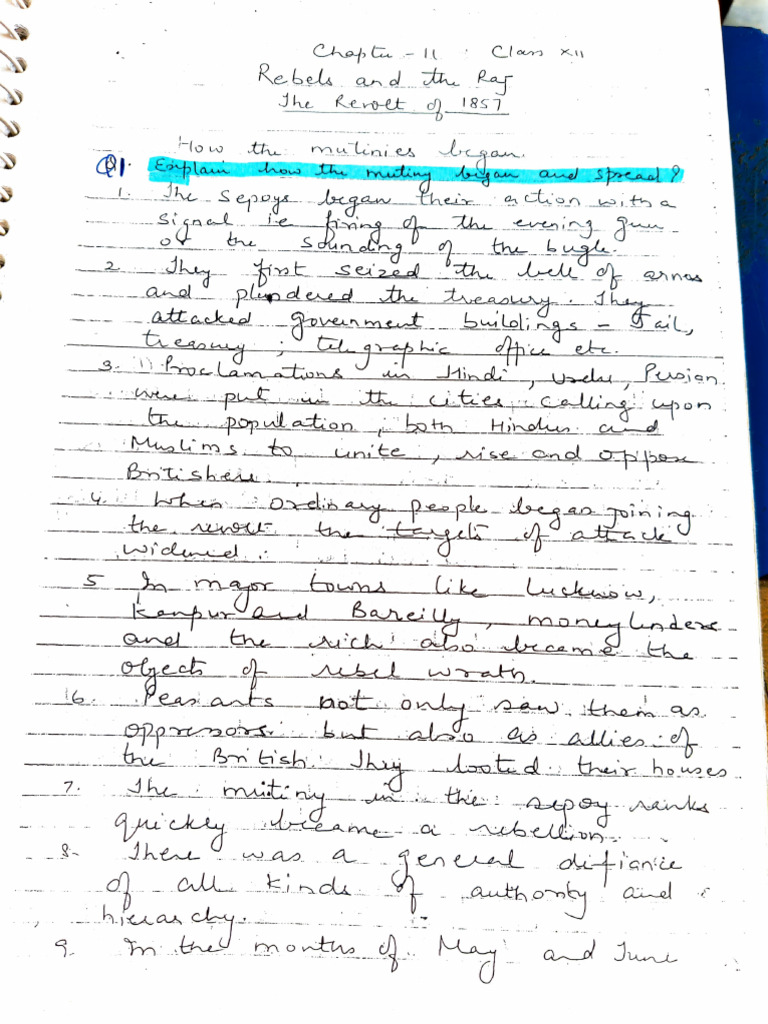 Chapter - 11 : Class XII
Rebels and the Raj
The Revolt of 1857
How the mutinies began.
Q1. Explain how the mutiny began and spread?
1. The sepoys began their action with a
signal i.e firing of the evening gun
or the sounding of the bugle.
2. They first seized the bell of arms
and plundered the treasury. They
attacked government buildings - Jail,
treasury, telegraphic office etc.
3. 1) Proclamations in Hindi, Urdu, Persian
were put in the cities calling upon
the population, both Hindus and
Muslims to unite, rise and oppose
Britishers.
4. When ordinary people began joining
the revolt the targets of attack
widened.
5 In major towns like Lucknow,
Kanpur and Bareilly, moneylenders
and the rich also became the
objects of rebel wrath.
6. Peasants not only saw them as
oppressors but also as allies of
the British. They looted their houses
7. The mutiny in the sepoy ranks
quickly became a rebellion.
8. There was a general defiance
of all kinds of authority and
hierarchy.
9. In the months of May and June